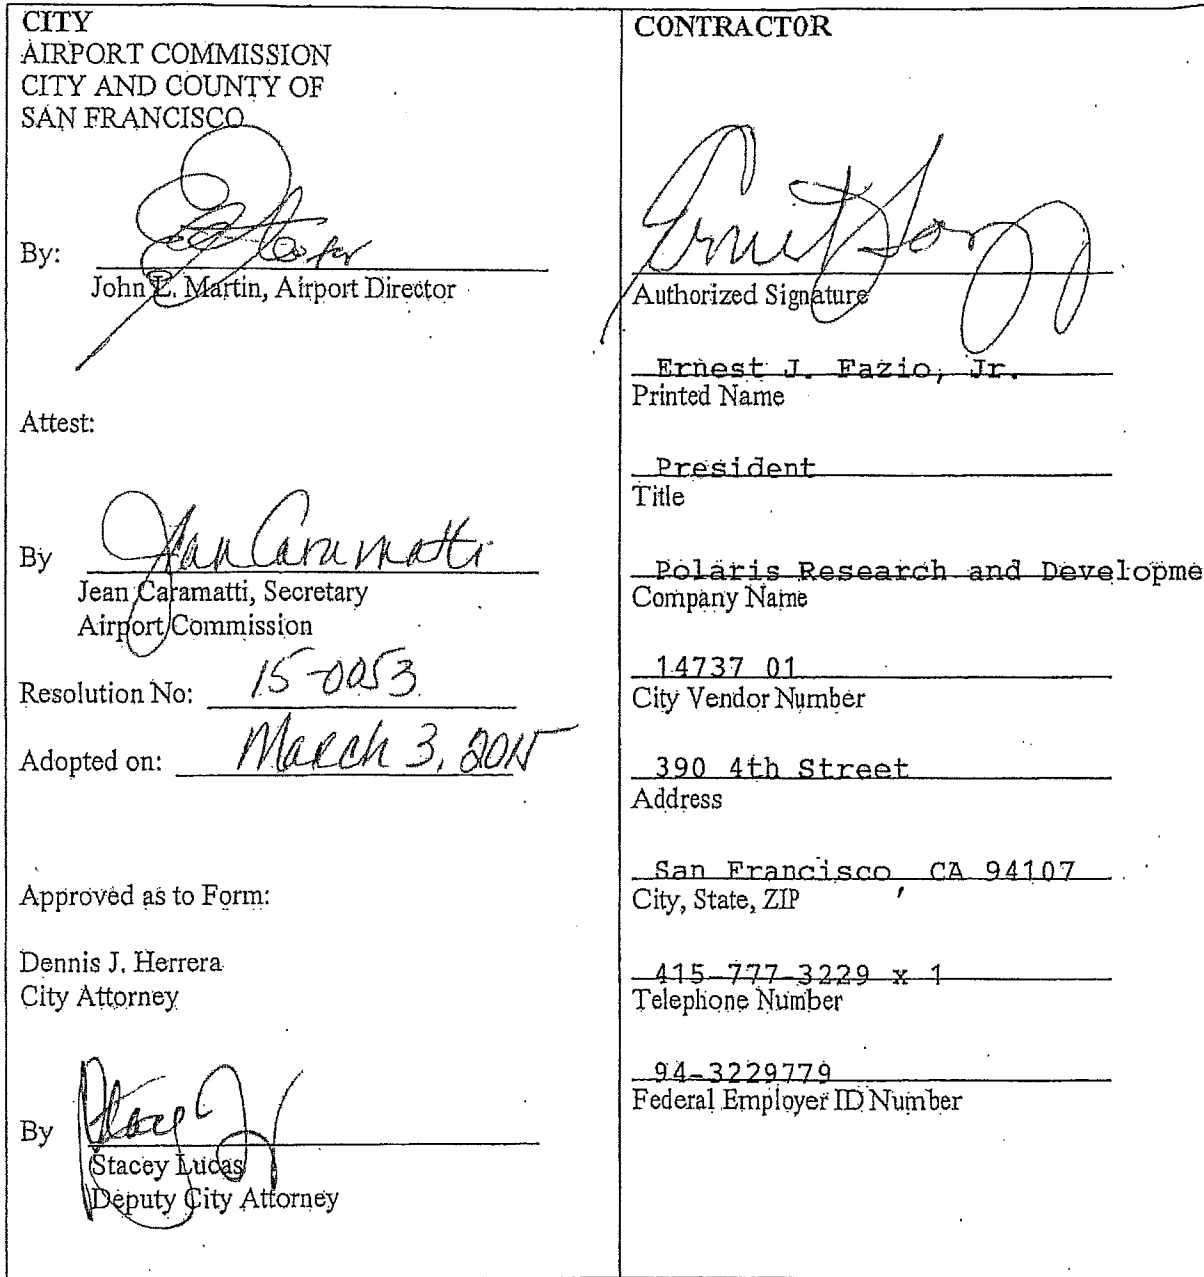 CITY
AIRPORT COMMISSION
CITY AND COUNTY OF
SAN FRANCISCO
By:
John L. Martin, Airport Director
Attest:
By Jean Caramatti
Jean Caramatti, Secretary
Airport Commission
Resolution No: 15-0053
Adopted on: March 3, 2015
Approved as to Form:
Dennis J. Herrera
City Attorney
By
Stacey Lucas
Deputy City Attorney
CONTRACTOR
Authorized Signature
Ernest J. Fazio, Jr.
Printed Name
President
Title
Polaris Research and Developme
Company Name
14737 01
City Vendor Number
390 4th Street
Address
San Francisco, CA 94107
City, State, ZIP
415-777-3229 x 1
Telephone Number
94-3229779
Federal Employer ID Number